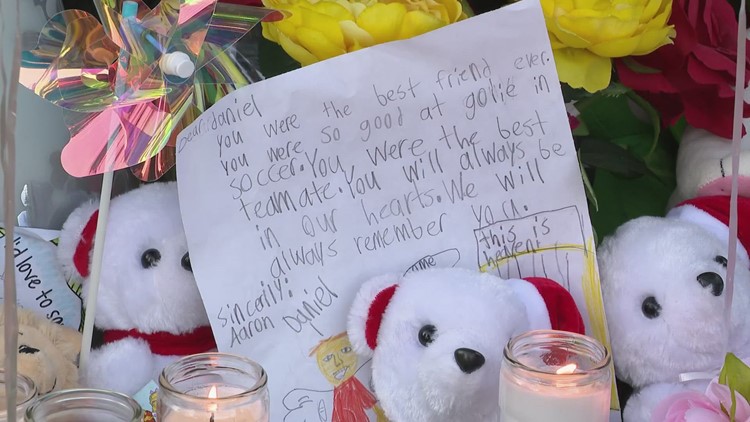 Dear: daniel
you were the best friend ever.
you were so good at golie in
soccer. You were the best
teamate. You will always be
in our hearts. We will
always remember you.
this is
heven!
me
sincarily:
Aaron Daniel
love to